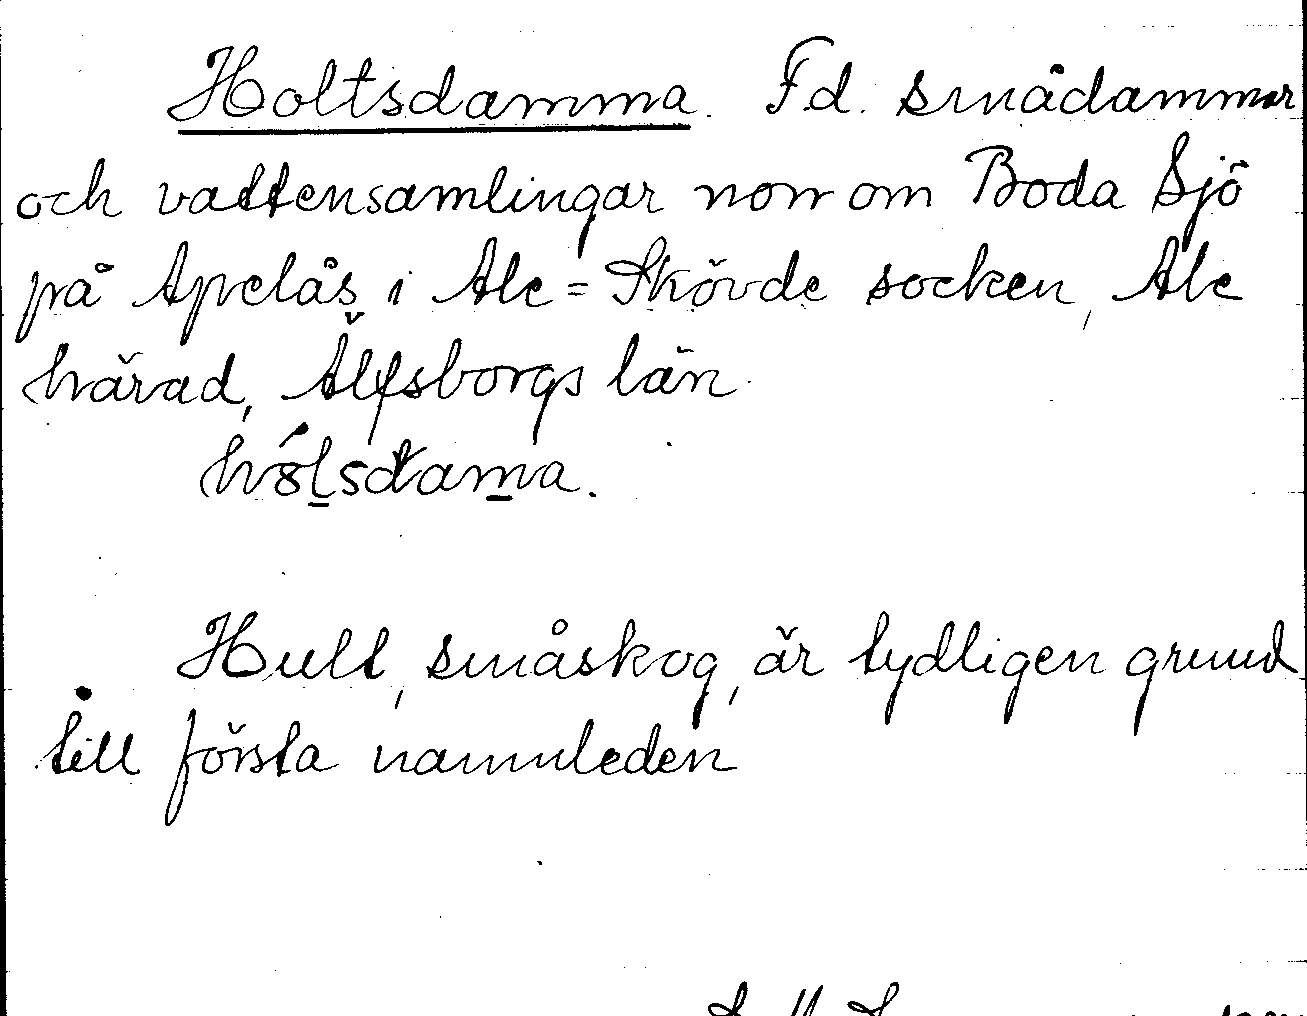 Holtsdamma. Fd. smådammar
och vattensamlingar norr om Boda Sjö
på Apelås i Ale=Skövde socken, Ale
härad, Älfsborgs län.
hólsdama.
Hult, småskog, är tydligen grund
till första namnleden